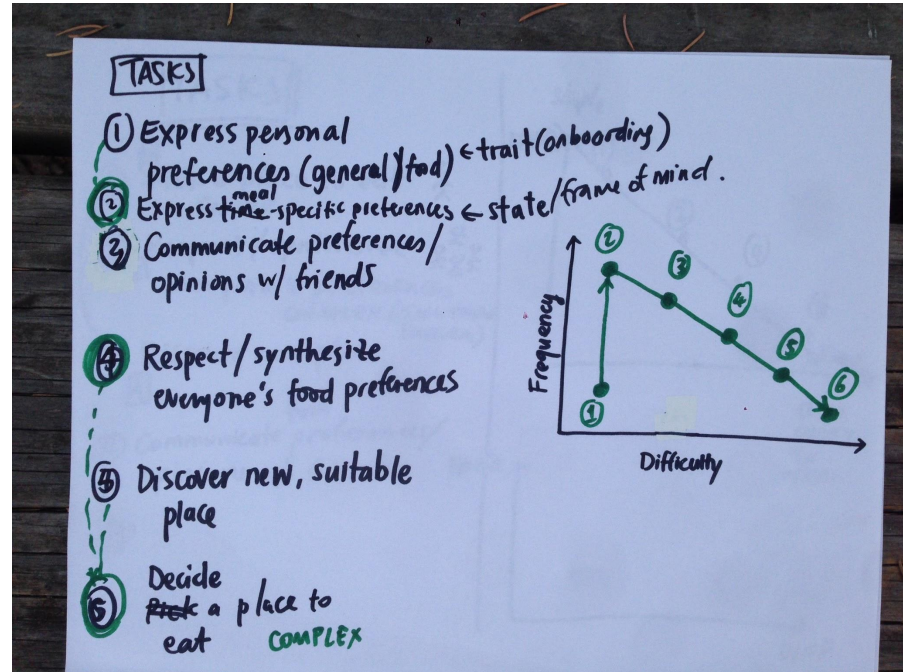 TASKS
① Express personal
preferences (general/food) ← trait (onboarding)
meal
② Express time-specific preferences ← state/frame of mind.
③ Communicate preferences/
opinions w/ friends
④ Respect/synthesize
everyone's food preferences
Discover new, suitable
place
Decide
Pick a place to
⑤ eat COMPLEX
Frequency
① ② ③ ④ ⑤ ⑥
Difficulty